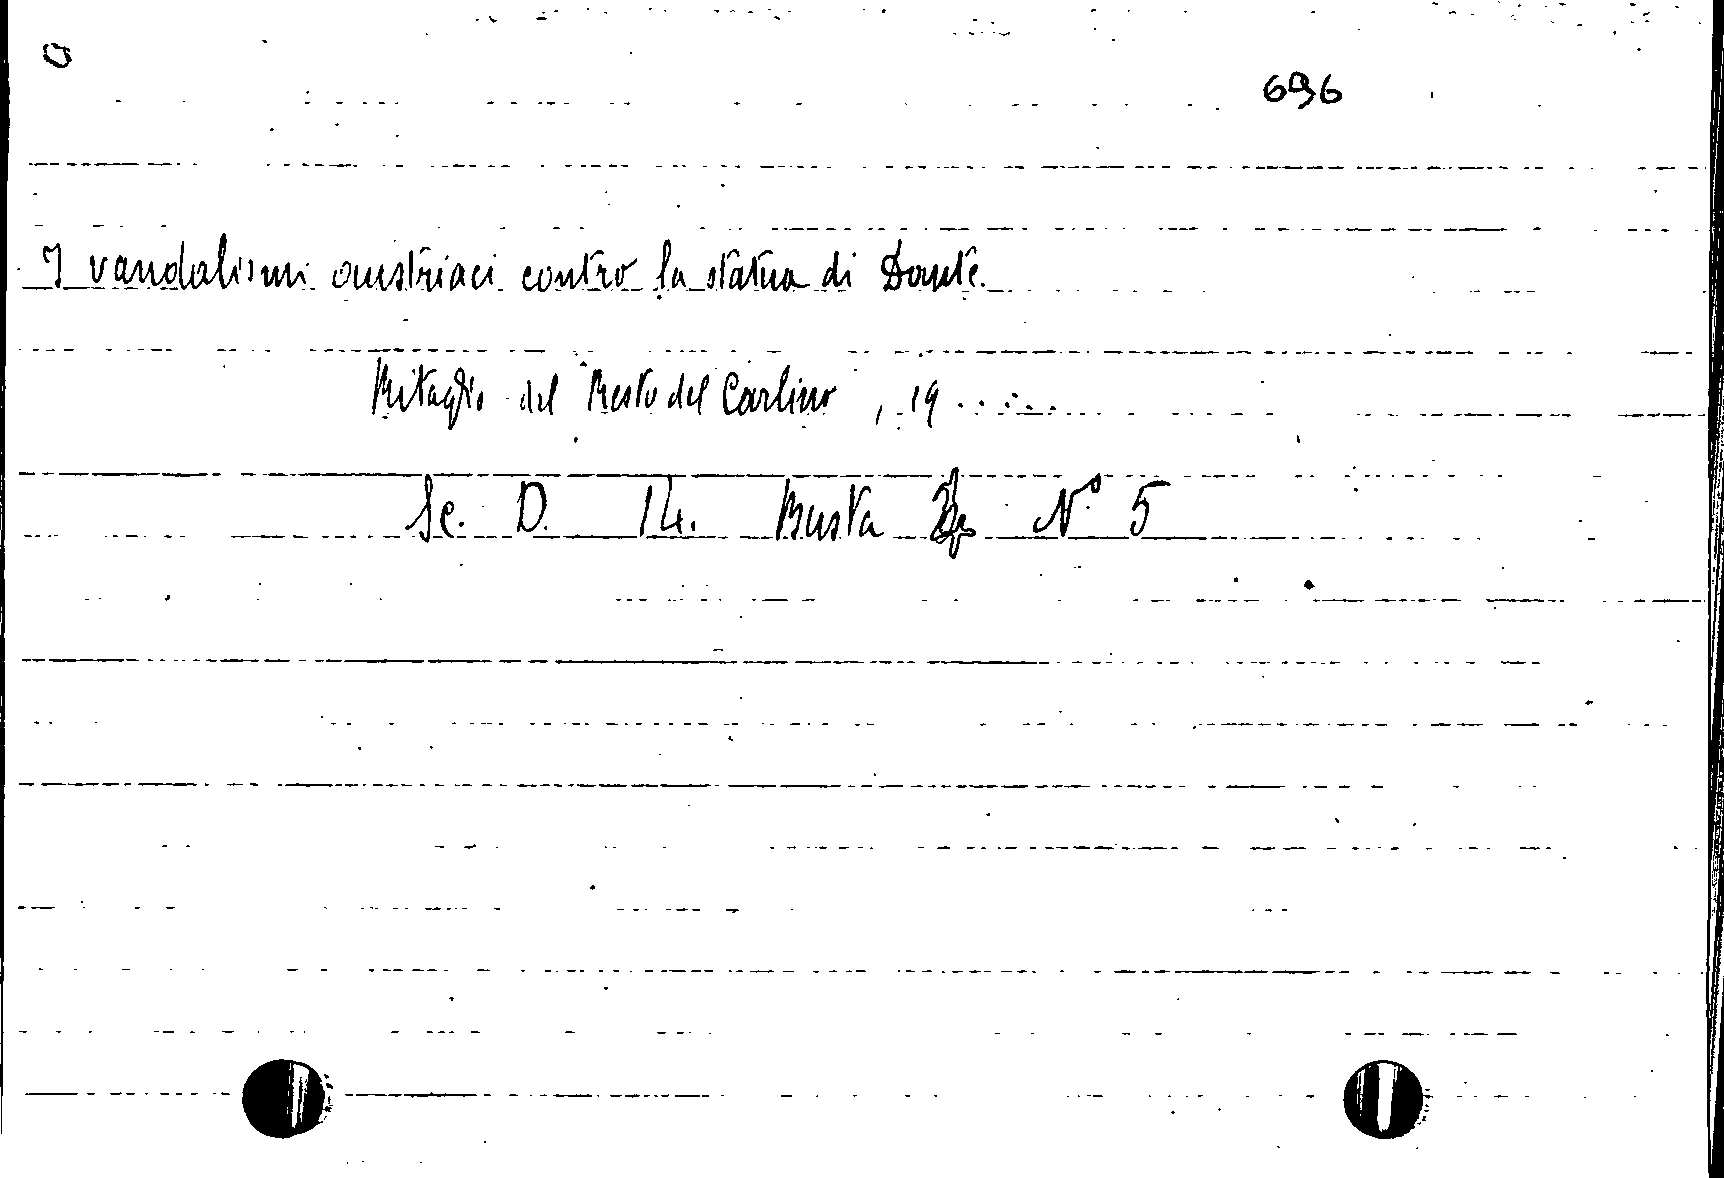 696
I vandalismi austriaci contro la statua di Dante.
Ritaglio del Resto del Carlino, 19......
Sc. D. 14. Busta N.º 5